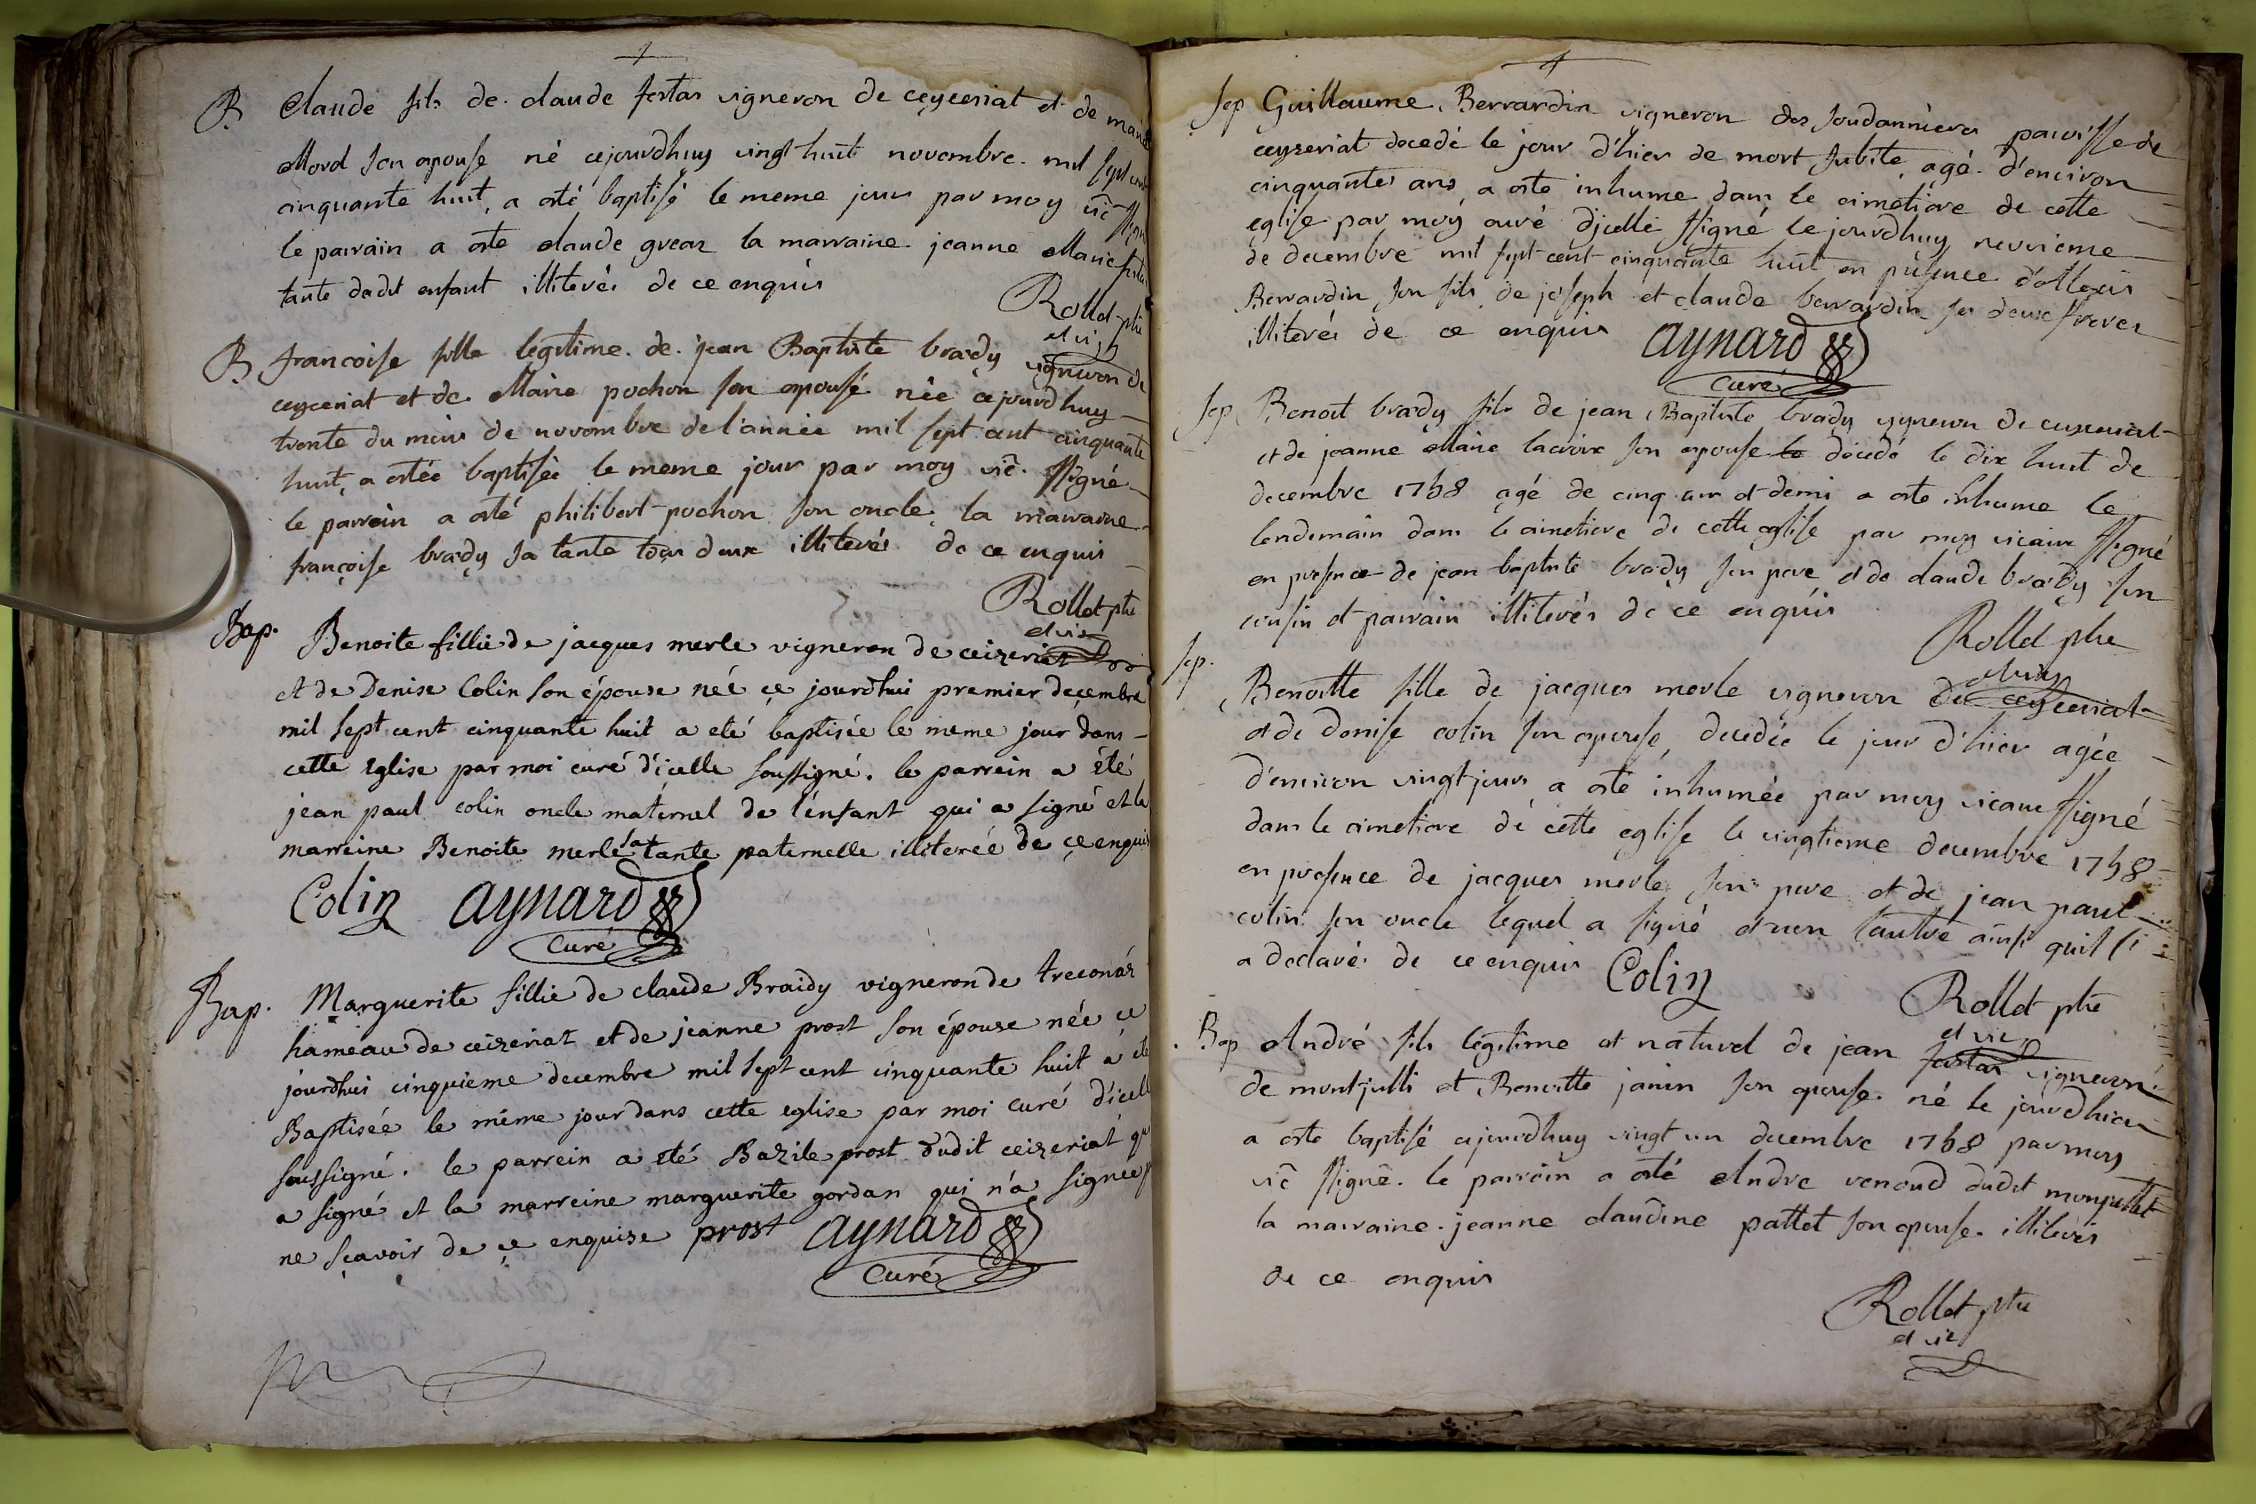 B Claude fils de claude fertas vigneron de ceyceriat et de marie
Morel son epouse né cejourdhuy vingt huit novembre mil sept cent
cinquante huit, a esté baptisé le meme jour par moy vic ssigné
le parrain a este claude greaz la marraine jeanne Marie fertas
tante dudit enfant illiterés de ce enquis
Rollet ptre
et vic
B francoise fille legitime de jean Baptiste braidy vigneron de
ceyceriat et de Marie pochon son epouse née cejourdhuy
trente du mois de novembre de l'année mil sept cent cinquante
huit, a estée baptisée le meme jour par moy vic. ssigné
le parrain a esté philibert pochon son oncle, la marraine
françoise braidy sa tante tous deux illiterés de ce enquis
Rollet ptre
et vic
Bap. Benoite fillie de jacques merle vigneron de ceizeriat
et de Denise Colin son épouse née ce jourdhui premier decembre
mil sept cent cinquante huit a eté baptisée le meme jour dans
cette Eglise par moi curé d'icelle soussigné. le parrein a été
jean paul colin oncle maternel de l'enfant qui a signé et la
marreine Benoite merle sa tante paternelle illiterée de ce enquis
Colin aynard
Curé
Bap. Marguerite fillie de claude Braidy vigneron de treconaz
hameau de ceizeriat et de jeanne prost son épouse née ce
jourdhui cinquieme decembre mil sept cent cinquante huit a eté
Baptisée le même jour dans cette eglise par moi curé d'icelle
soussigné. le parrein a eté Bazile prost dudit ceizeriat qui
a signé et la marreine marguerite gordan qui n'a signée p
ne sçavoir de ce enquise prost aynard
Curé
Sep Guillaume Berrardin vigneron des soudannieres parroisse de
ceyzeriat decedé le jour d'hier de mort subite, agé d'environ
cinquante ans a esté inhume dans le cimetiere de cette
eglise par moy curé d'jcelle ssigné le jourdhuy neuvieme
de decembre mil sept cent cinquante huit en présence d'Alexis
Berrardin son fils, de joseph et claude berrardin ses deux freres
illiterés de ce enquis aynard
Curé
Sep Benoit braidy fils de jean Baptiste braidy vigneron de ceyceriat
et de jeanne Marie lacroix son epouse decedé le dix huit de
decembre 1758 agé de cinq ans et demi a esté inhume le
lendemain dans le cimetiere de cette eglise par moy vicaire ssigné
en presence de jean baptiste braidy son pere et de claude braidy son
cousin et parrain illiterés de ce enquis
Rollet ptre
et vic
Sep. Benoitte fille de jacques merle vigneron de ceyceriat
et de denise colin son epouse, decedée le jour d'hier agée
d'environ vingt jours a esté inhumée par moy vicaire ssigné
dans le cimetiere de cette eglise le vingtieme decembre 1758
en presence de jacques merle son pere et de jean paul
colin son oncle lequel a signé et non l'autre ainsi quil l'
a declaré de ce enquis Colin
Rollet ptre
et vic
Bap André fils legitime et naturel de jean fertas vigneron
de montjulli et Benoitte janin son epouse né le jourdhier
a esté baptisé cejourdhuy vingt un decembre 1758 par moy
vic ssigné. le parrain a esté Andre renoud dudit monjullet
la marraine jeanne claudine pattet son epouse illiterés
de ce enquis
Rollet ptre
et vic